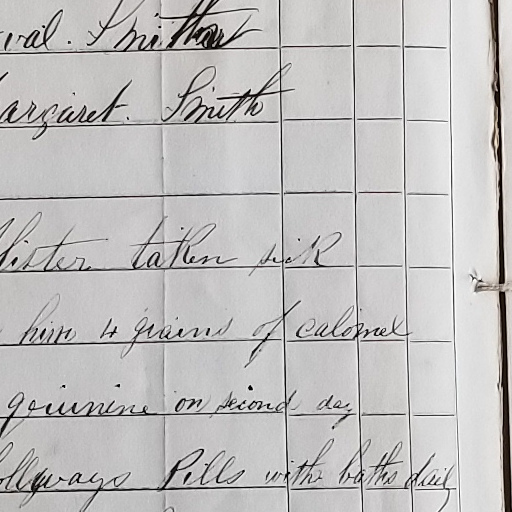 Smith
argaret. Smith
lister taken sick
him 4 grains of calomel
quinnine on second day
olloways Pills withe baths daily